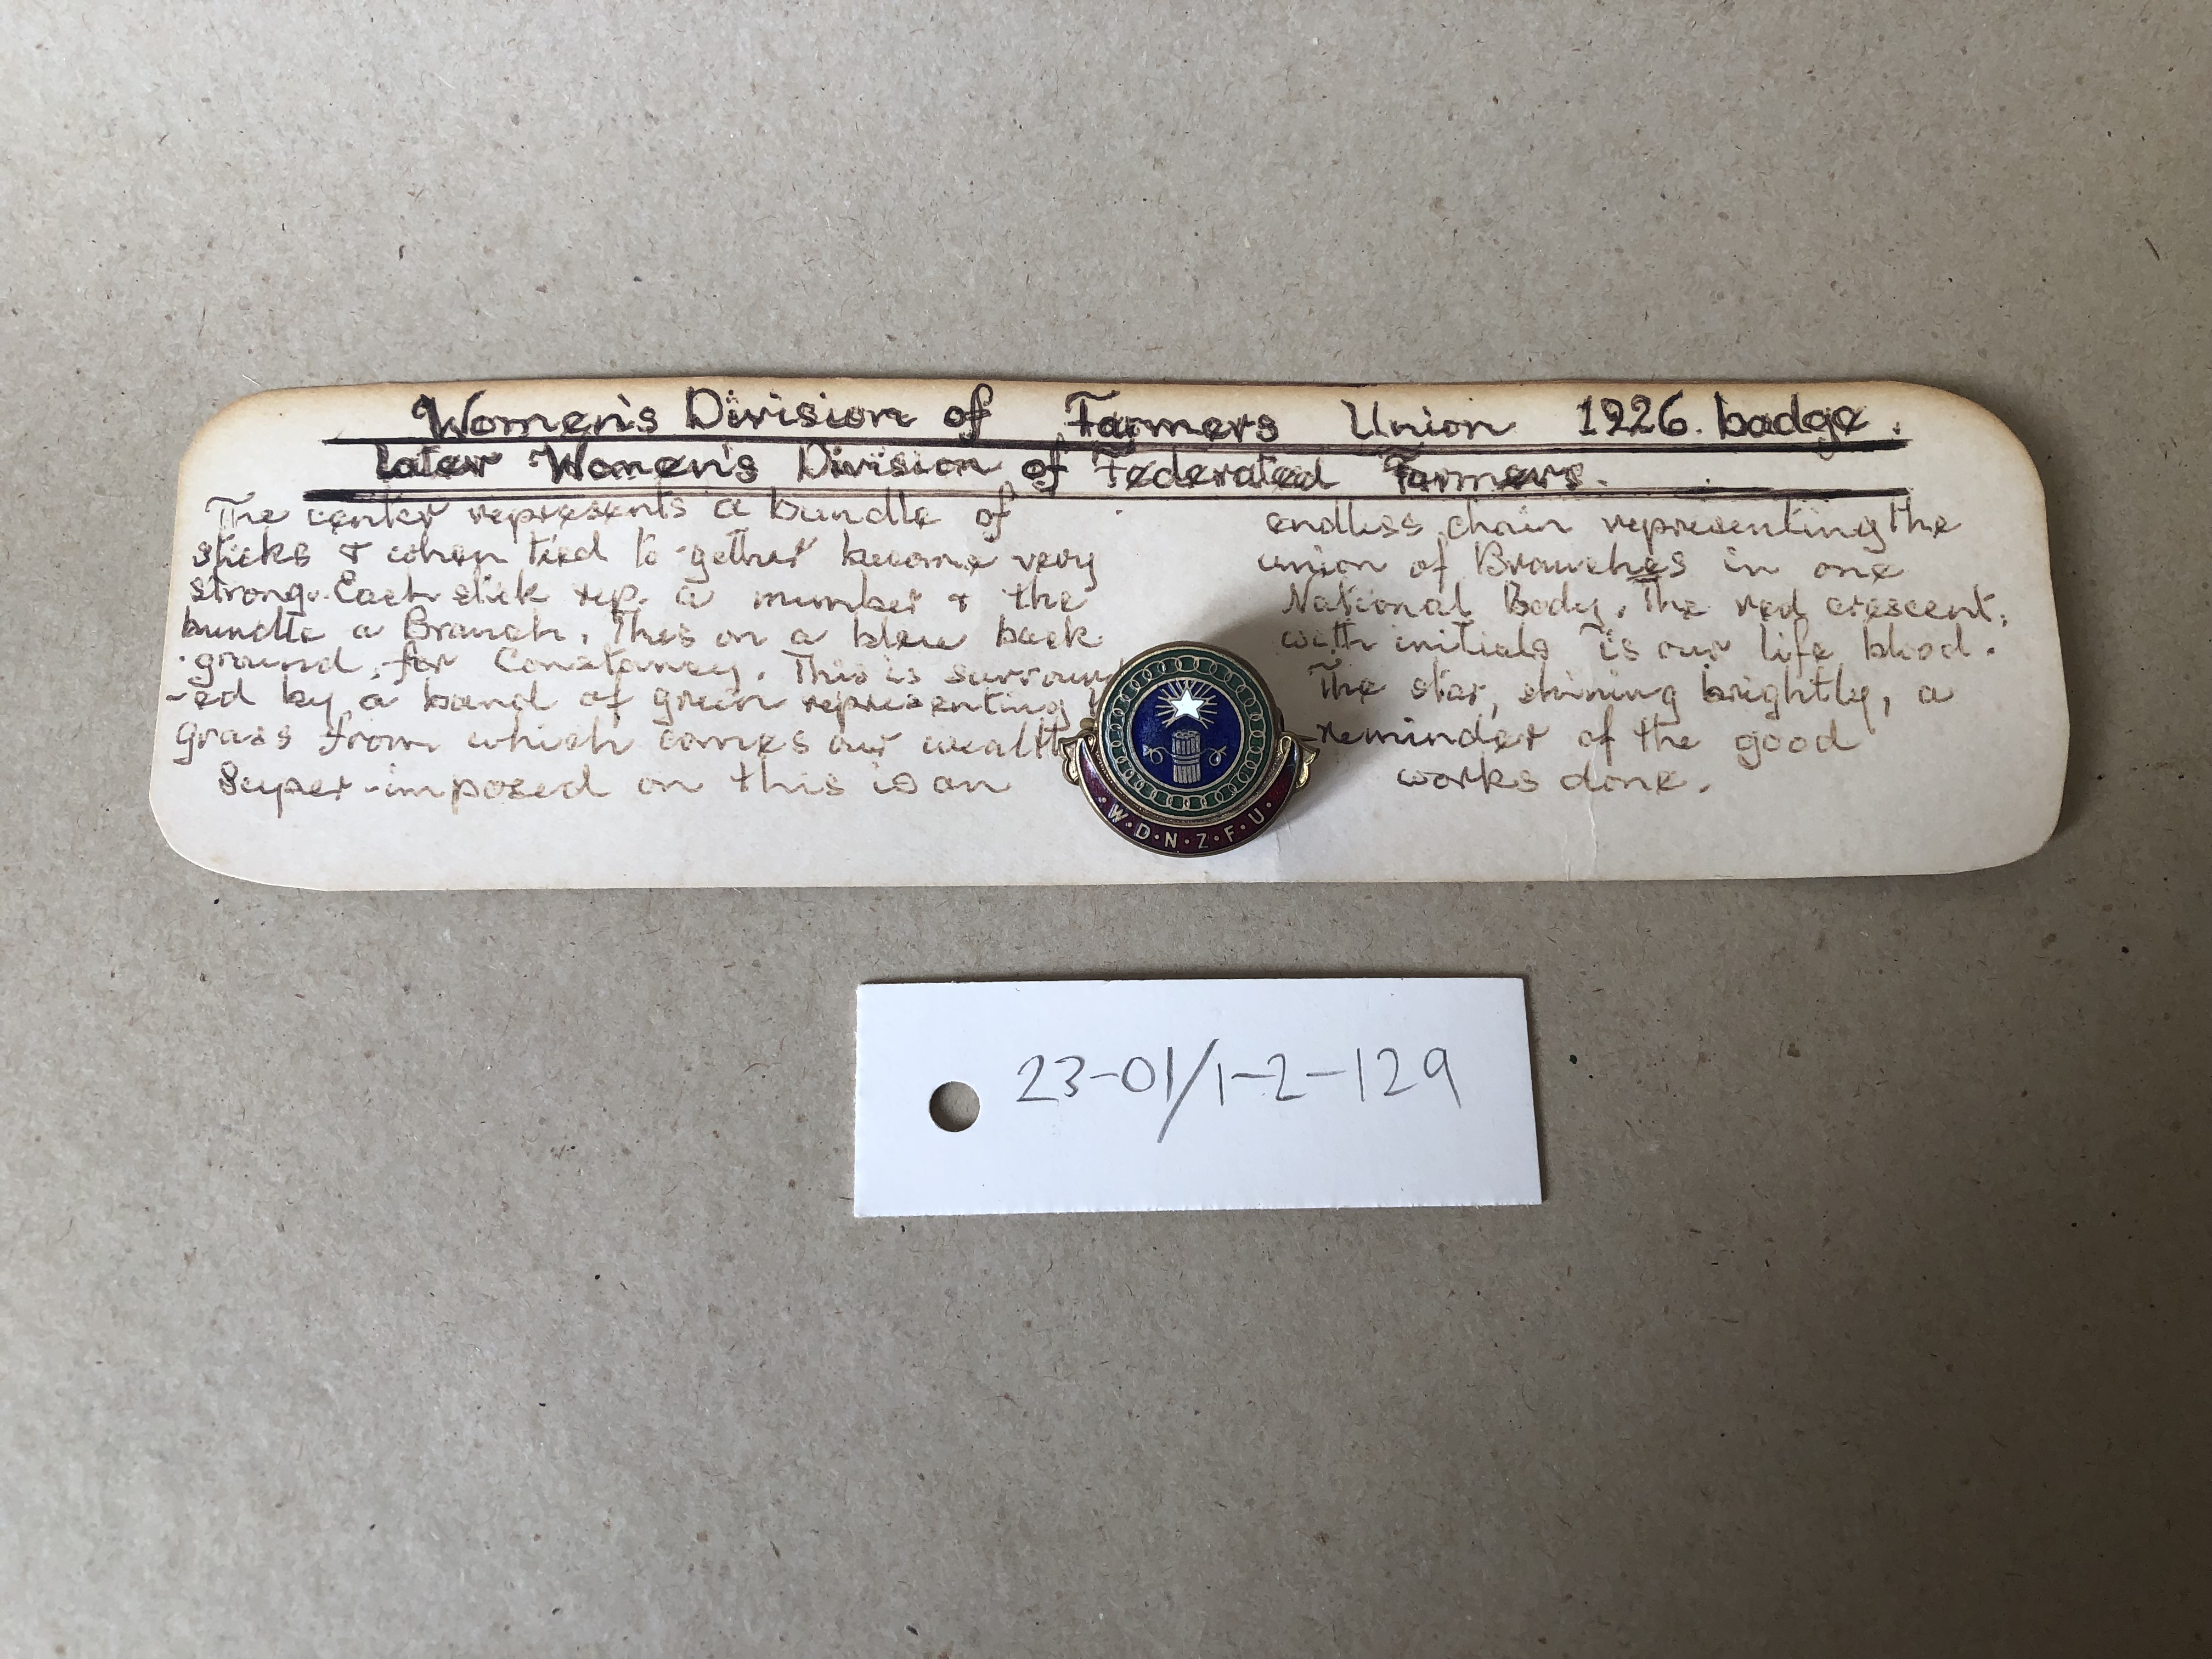 Women's Division of Farmers Union 1926. badge:
Later Women's Division of Federated Farmers.
The center represents a bundle of
sticks & when tied to gether become very
strong. Each stick rep. a member & the
bundle a Branch, this on a blue back
ground, for Constancy. This is surround
-ed by a band of green representing
grass from which comes our wealth
Super-imposed on this is an
endless chain representing the
union of Branches in one
National Body, the red crescent,
with initials is our life blood.
The star, shining brightly, a
reminder of the good
works done.
·W·D·N·Z·F·U·
23-01/1-2-129